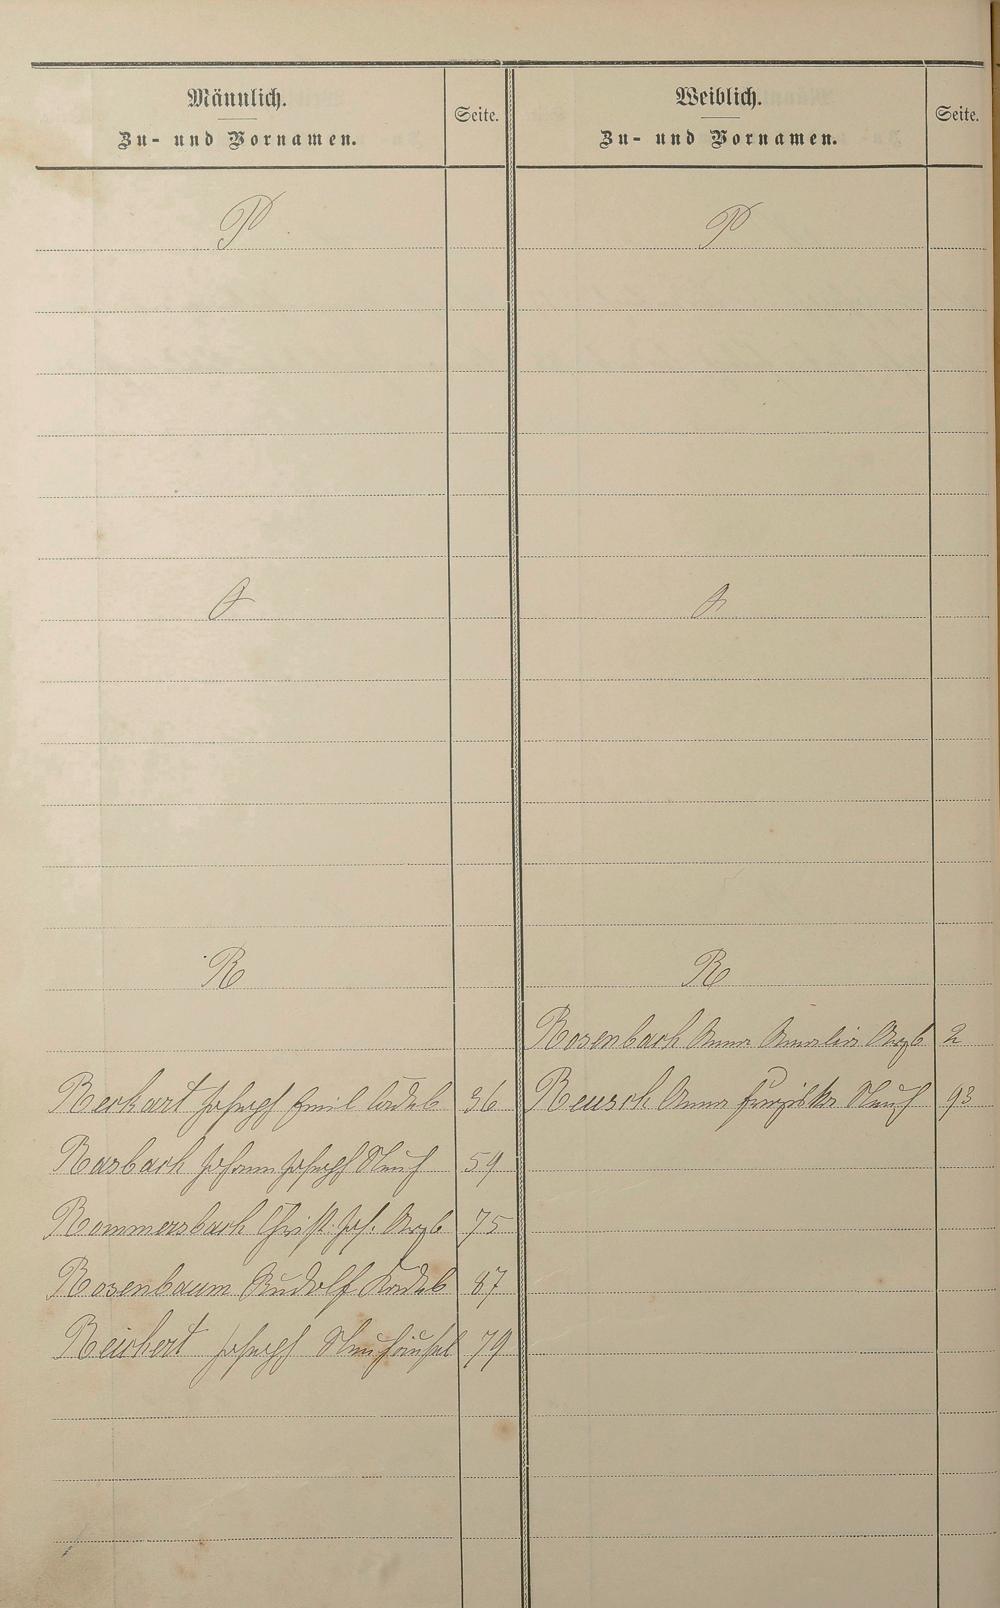 Männlich.
Zu- und Vornamen.
Seite.
Weiblich.
Zu- und Vornamen.
Seite.
P
P
Q
Q
R
R
Rosenbach Anna Amalia Arzb 2
Reckart Joseph Emil Cadeb 36
Reusch Anna Franziska Neuh 93
Rasbach Johann Joseph Neuh 59
Rommersbach Christ. Jos. Arzb 75
Rosenbaum Rudolf Kadeb 87
Reichert Joseph Neuhäusel 79